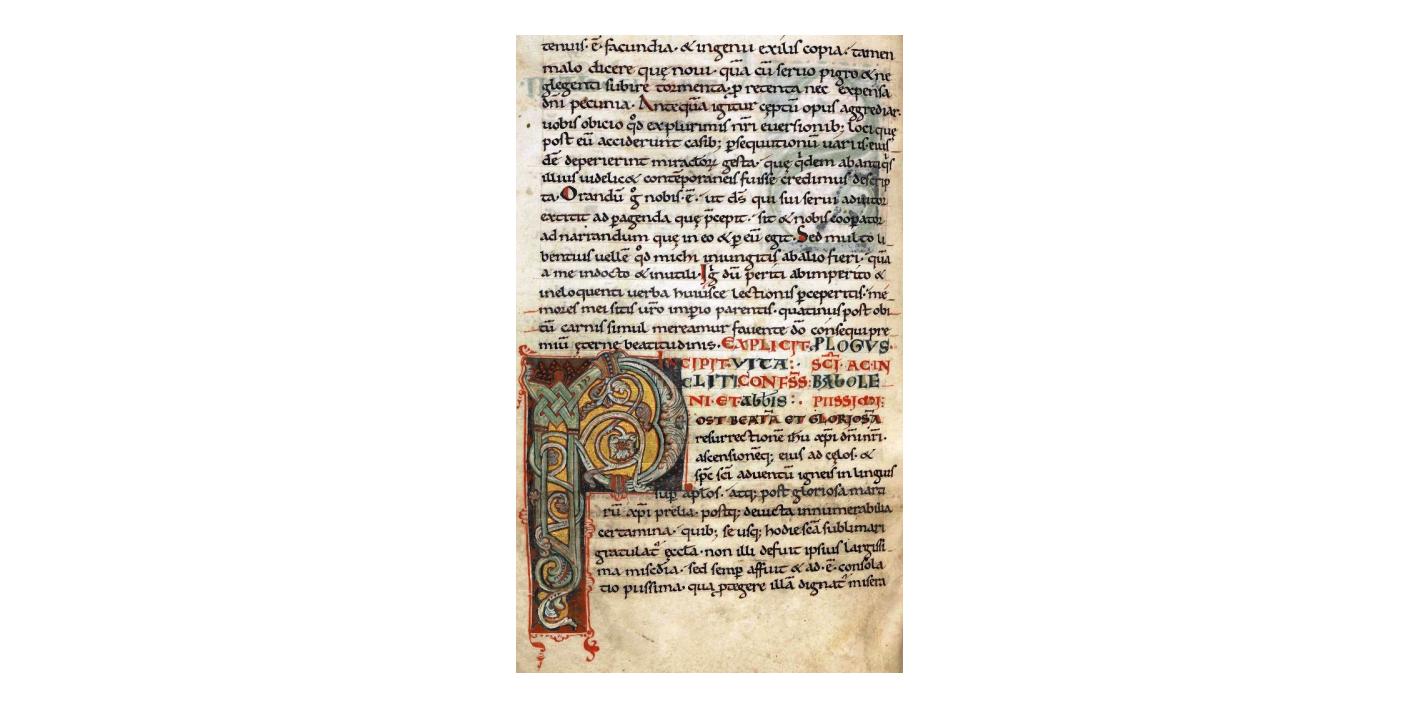 tenuis· ē· facundia· & ingenii exilis copia· tamen
malo dicere quę noui· quā cū seruo pigro & ne
glegenti subire tormenta· ꝑ retenta nec expensa
dn̄i pecunia· Antequā igitur cęptū opus aggrediar·
uobis obicio qđ explurimis nr̄i euersionib; loci quę
post eū acciderunt casib; ꝑsequutionū uariis· eius
dē deperierint miraclorū gesta· quę q̇dem abantiq̇s
illius uidelic& contēporaneis fuisse credimus descrip
ta· Orandū g̊ nobis· ē· ut d̄s qui sui serui adiutor
extitit ad ꝑagenda quę p̄cepit· sit & nobis cooꝑator
ad narrandum quę in eo & ꝑ eū egit· Sed multo li
bentius uellē qđ michi iniungitis abalio fieri· quā
a me indocto & inutili· Ig̊ dū periti abimperito &
ineloquenti uerba huiusce lectionis ꝑceperitis· me
mores mei sitis uro impio parentis· quatinus post obi
tū carnis simul mereamur fauente d̄o consequi pre
miū ęterne beatitudinis· EXPLICIT· PLOGVS·
INCIPIT· VITA: SC̄I· AC IN
CLITI CONFSS: BABOLE
NI· ET abb̄is : PIISSIMI:
POST BEATĀ ET GLORIOSĀ
resurrectionē ih̄u xp̄i dn̄i nr̄i·
ascensionēq; eius ad cęlos· &
sp̄c sc̄i aduentū igneis in linguis
suꝑ ap̄los· atq; post gloriosa marti
rū xp̄i prelia· postq; deuicta innumerabilia
certamina· quib; se usq; hodie sc̄ā sublimari
gratulat̄ ęccl̄a· non illi defuit ipsius largissi
ma misc̄dia· sed semꝑ affuit & ad· ē· consola
tio piissima· qua p̄tegere illā dignat̄ misera